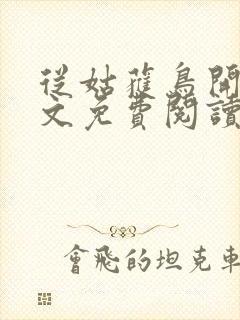 從姑蒦鳥開
文免費閱讀
會飛的坦克車